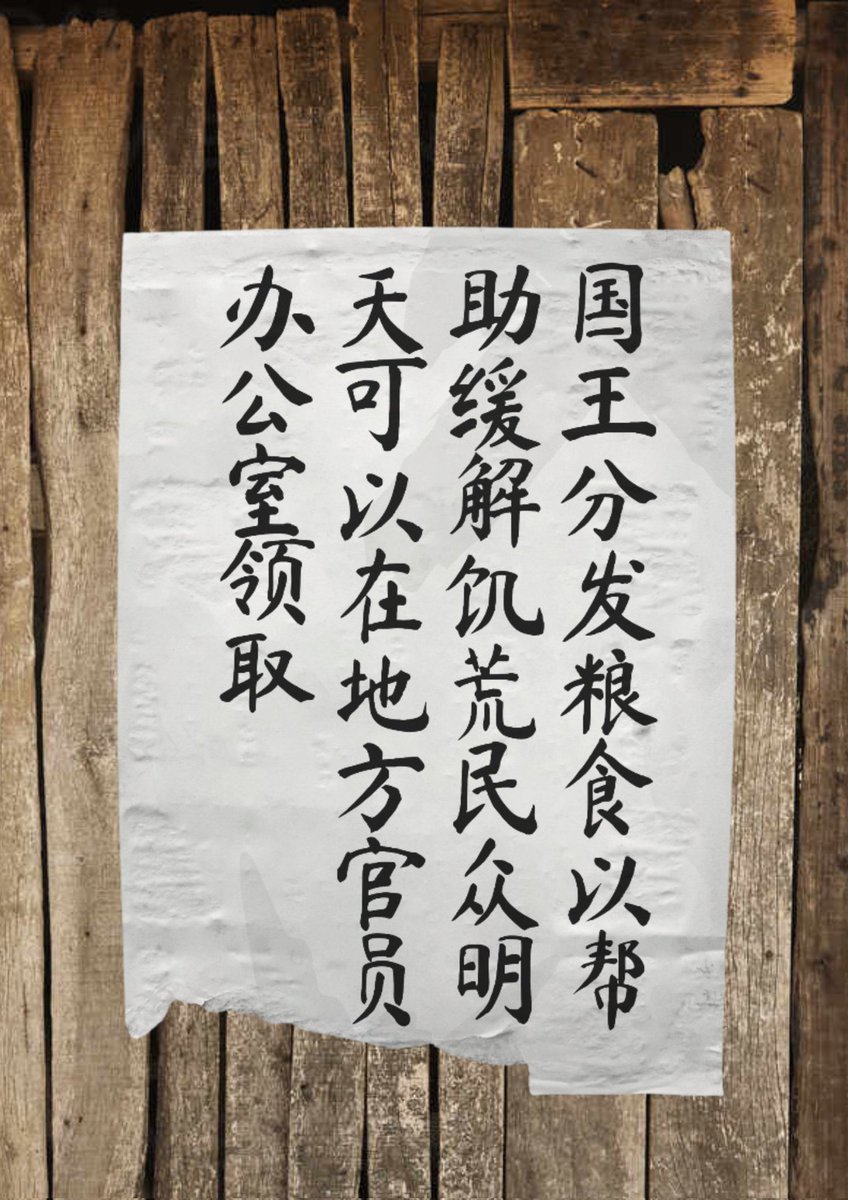 国王分发粮食以帮
助缓解饥荒民众明
天可以在地方官员
办公室领取